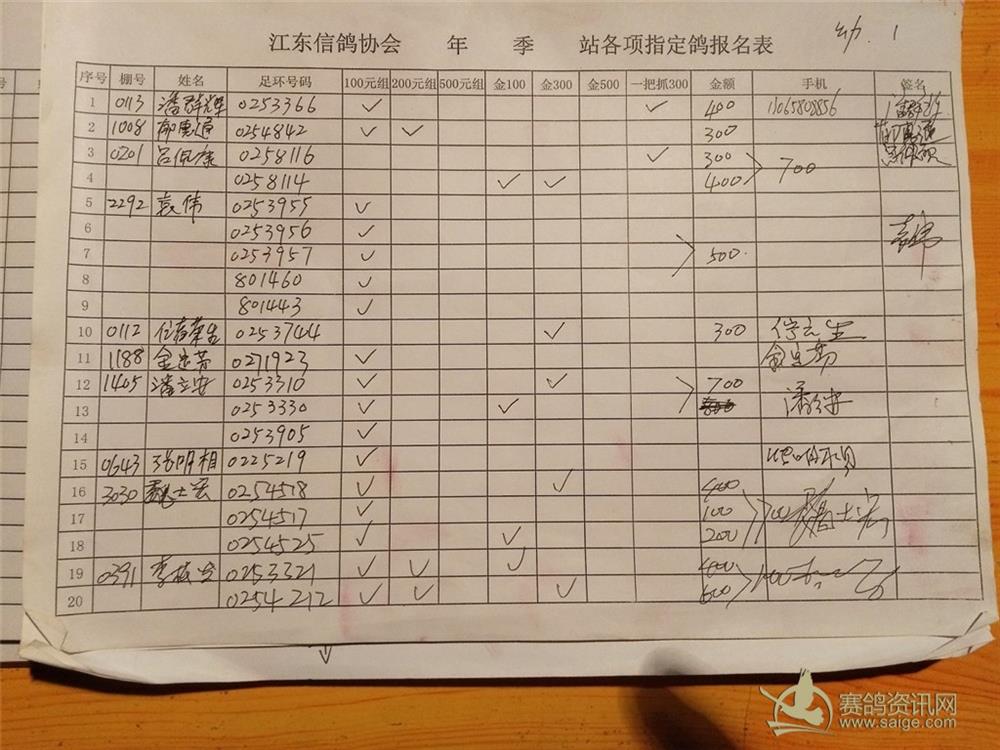 幼. 1
江东信鸽协会 年 季 站各项指定鸽报名表
序号 棚号 姓名 足环号码 100元组 200元组 500元组 金100 金300 金500 一把抓300 金额 手机 签名
1 0113 潘群辉 0253366 ✓ ✓ 400
2 1008 郁惠通 0254842 ✓ ✓ 300
3 0201 吕佩康 0258116 ✓ 300
4 0258114 ✓ ✓ 400 700
5 2292 袁伟 0253955 ✓
6 0253956 ✓ 袁伟
7 0253957 ✓ 500.
8 801460 ✓
9 801443 ✓
10 0112 0253744 ✓ 300
11 1188 0271923 ✓
12 1405 潘立安 0253310 ✓ ✓ 700
13 0253330 ✓ ✓
14 0253905 ✓
15 0643 张明相 0225219 ✓
16 3030 魏士宏 0254518 ✓ ✓ 400
17 0254517 ✓ 100
18 0254525 ✓ ✓ 200
19 0391 0253321 ✓ ✓ ✓ 400
20 0254212 ✓ ✓ ✓ 600
赛鸽资讯网
www.saige.com